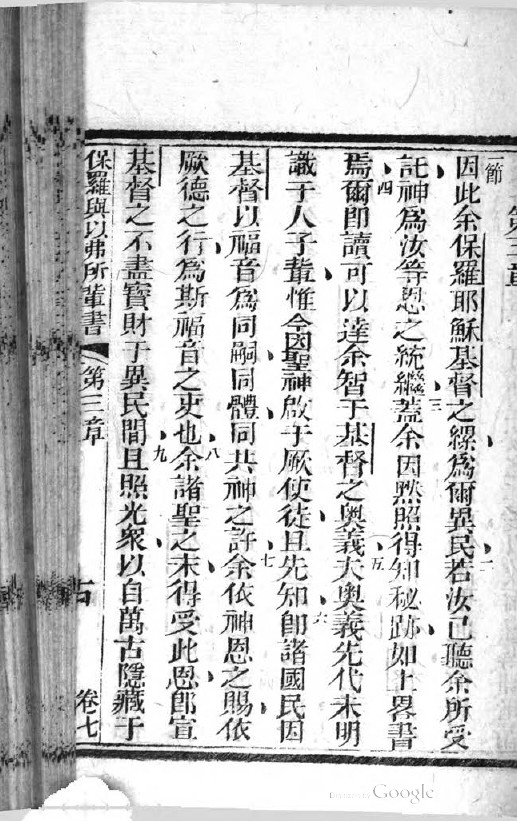 第三章
節
因此余保羅耶穌基督之縲為爾異民二若汝已聽余所受
託神為汝等恩之統繼三蓋余因默照得知秘跡如上畧書
焉四爾即讀可以達余智于基督之奧義五夫奧義先代未明
識于人子軰惟今因聖神啟于厥使徒且先知六即諸國民因
基督以福音為同嗣同體同共神之許七余依神恩之賜依
厥德之行為斯福音之吏也八余諸聖之末得受此恩即宣
基督之不盡寶財于異民間九且照光衆以自萬古隱藏于
保羅與以弗所軰書 第三章 卷七
Digitized by Google